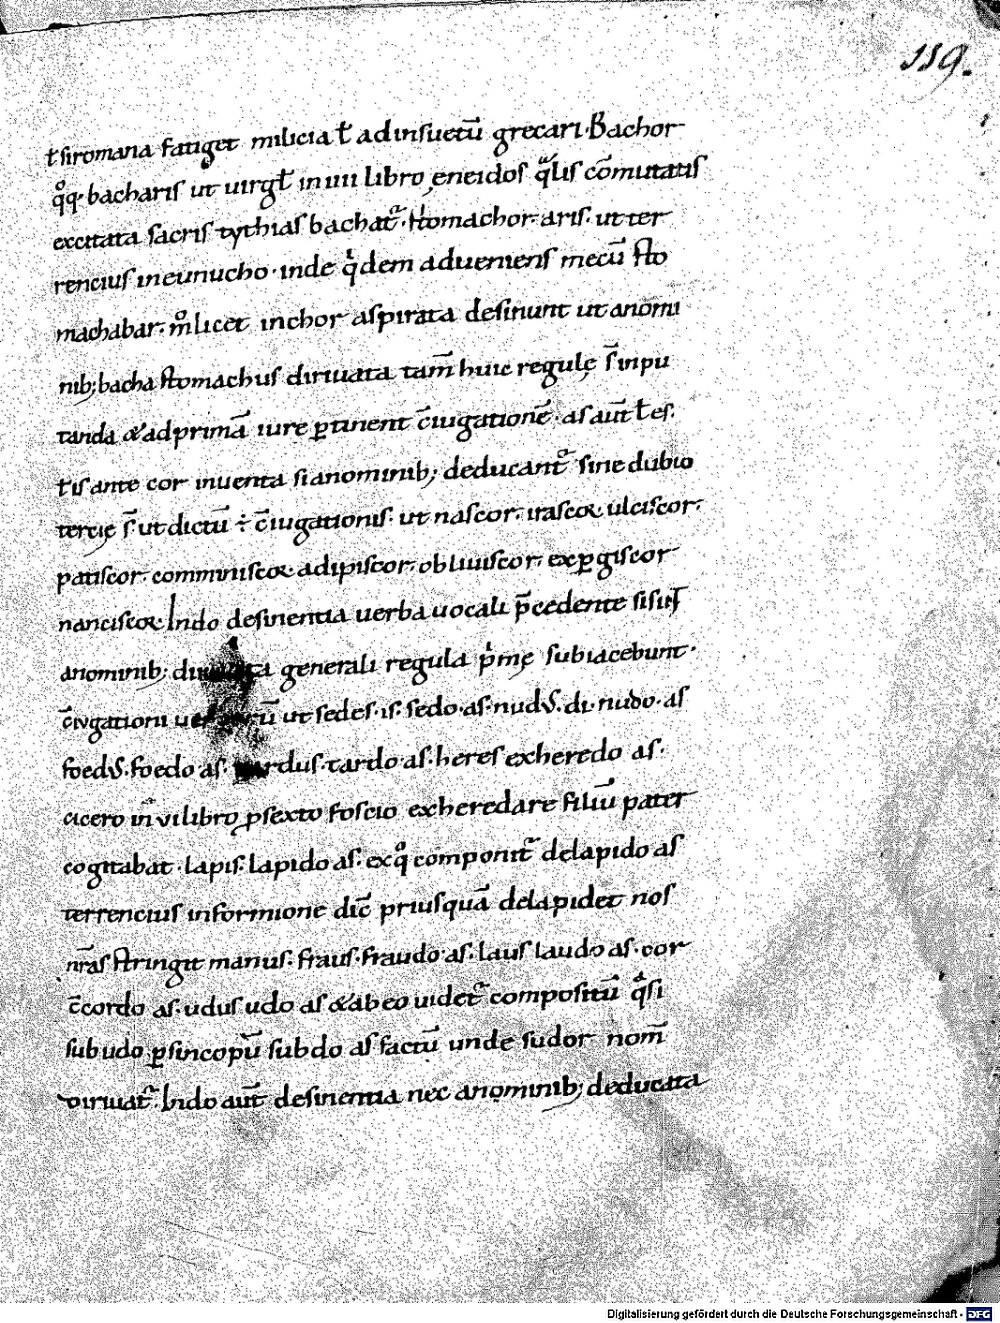 119.
ƚ siromana fatiget milicia ƚ adinsuetū grecari. Bachor
qͦq; bacharis ut uirgƚ in iiii libro ęneidos qͣlis cōmutatis
excitata sacris tythias bachat᷑. stomachor. aris. ut ter
rencius ineunucho. inde qͥdem adueniens mecū sto
machabar. mͦ licet inchor aspirata desinunt ut anomi
nib; bacha stomachus diriuata tam̄ huic regulę s̄ inpu
tanda & adprimā iure ꝑtinent c̄iugationē. as aut̄ ƚ es.
ƚ is ante cor inuenta si anominib; deducant᷑ sine dubio
tercię s̄ ut dictū ÷ c̄iugationis. ut nascor. irascor ulciscor.
patiscor. comminiscor adipiscor. obliuiscor. exꝑgiscor
nanciscor. Indo desinentia uerba uocali p̄cedente si sut̄
anominib; diriuata generali regula pͥmę subiacebunt.
c̄iugationi ut sedes. is. sedo. as. nudus. di. nudo. as
foedus. foedo as. tardus. tardo. as. heres exheredo as.
cicero in̄ vi libro ꝓsexto foscio exheredare filiū pater
cogitabat. lapis. lapido as. exqͦ componit᷑ delapido as
terrencius informione dic̄ priusquā delapidet nos
nr̄as stringit manus. fraus. fraudo. as. laus laudo as. cor
c̄cordo as. udus udo as & abeo uidet᷑ compositū qͣsi
sub udo ꝑsincopū subdo as factū unde sudor nom̄
diriuat᷑. Indo aut̄ desinentia nec anominib; deducata
Digitalisierung gefördert durch die Deutsche Forschungsgemeinschaft - DFG